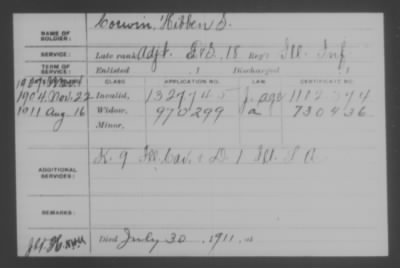 NAME OF SOLDIER: Corwin, Hibben S.
SERVICE: Late rank Adjt. 18 Reg't Ill. Inf.
TERM OF SERVICE: Enlisted , 1 Discharged , 1
CLASS. APPLICATION NO. LAW. CERTIFICATE NO.
1904 Nov. 22 Invalid, 1327745 age 1112374
1911 Aug. 16 Widow, 970299 a 730436
Minor,
ADDITIONAL SERVICES: K. 9 Ill. Cav. & D. 1 Ill. L A
REMARKS:
Died July 30, 1911, at